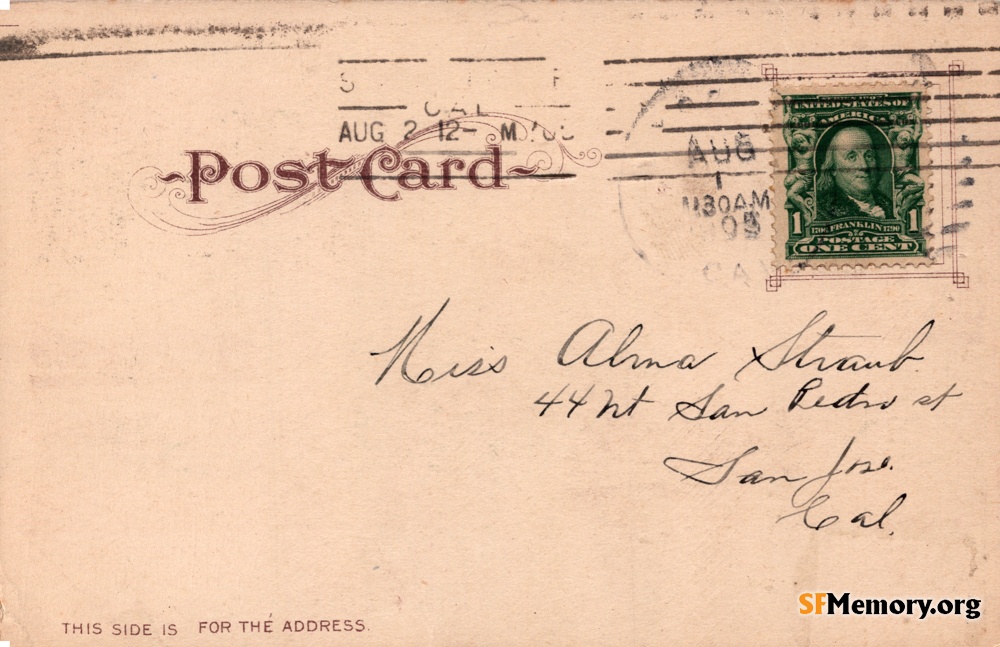 CAL
AUG 2 12- M
Post Card
AUG
1
1130AM
CA
UNITED STATES OF
AMERICA
1 1
1706 FRANKLIN 1790
POSTAGE
ONE CENT
Miss Alma Straub.
44 Nt San Pedro st
San Jose.
Cal.
THIS SIDE IS FOR THE ADDRESS.
SFMemory.org